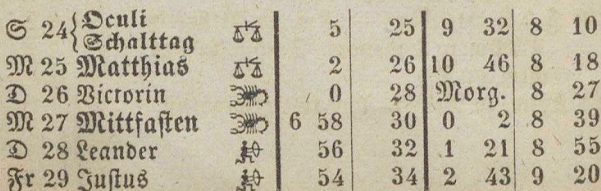 S 24 {Oculi 5 25 9 32 8 10
Schalttag
M 25 Matthias 2 26 10 46 8 18
D 26 Victorin 0 28 Morg. 8 27
M 27 Mittfasten 6 58 30 0 2 8 39
D 28 Leander 56 32 1 21 8 55
Fr 29 Justus 54 34 2 43 9 20